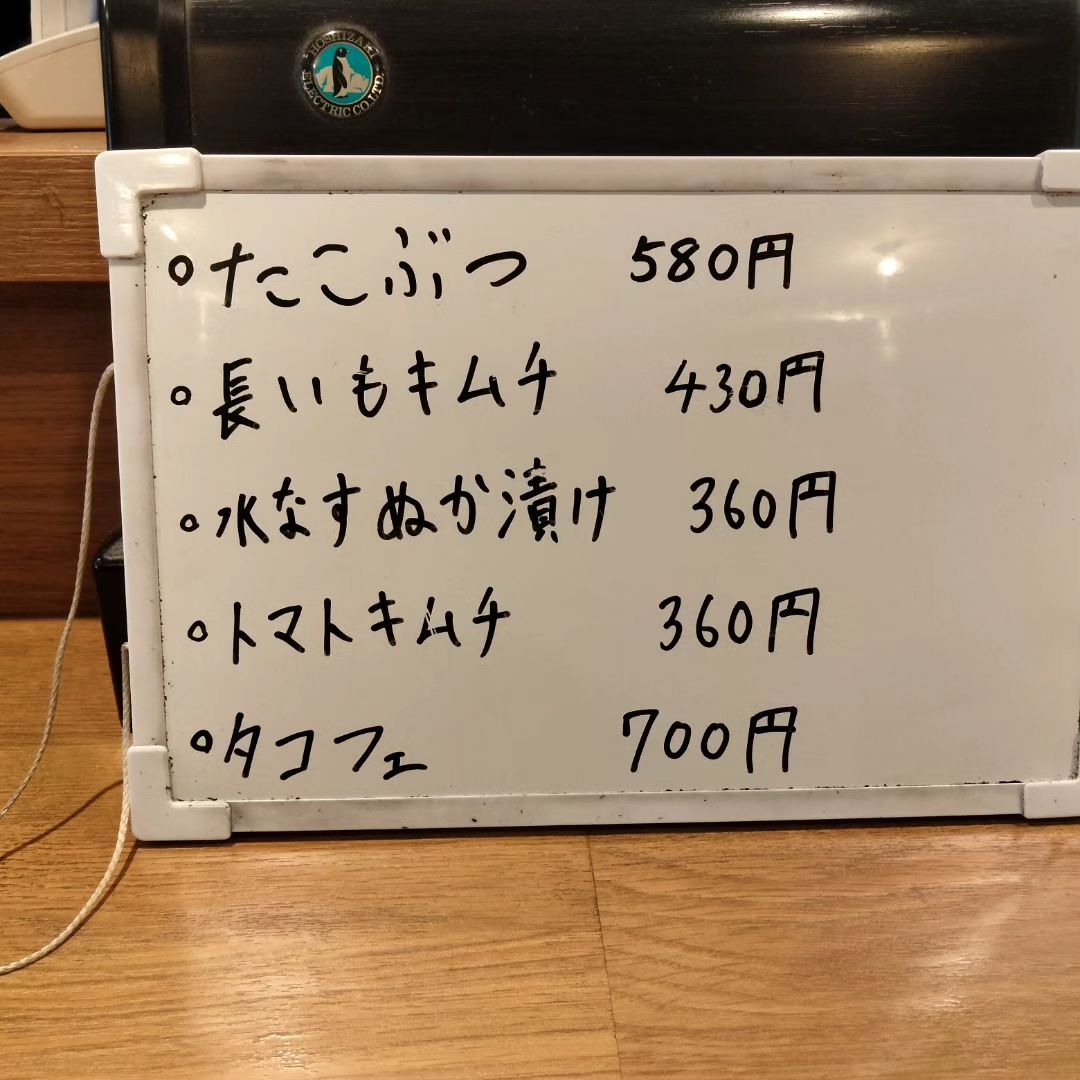 HOSHIZAKI
ELECTRIC CO.LTD.
。たこぶつ 580円
。長いもキムチ 430円
。水なすぬか漬け 360円
。トマトキムチ 360円
。タコフェ 700円